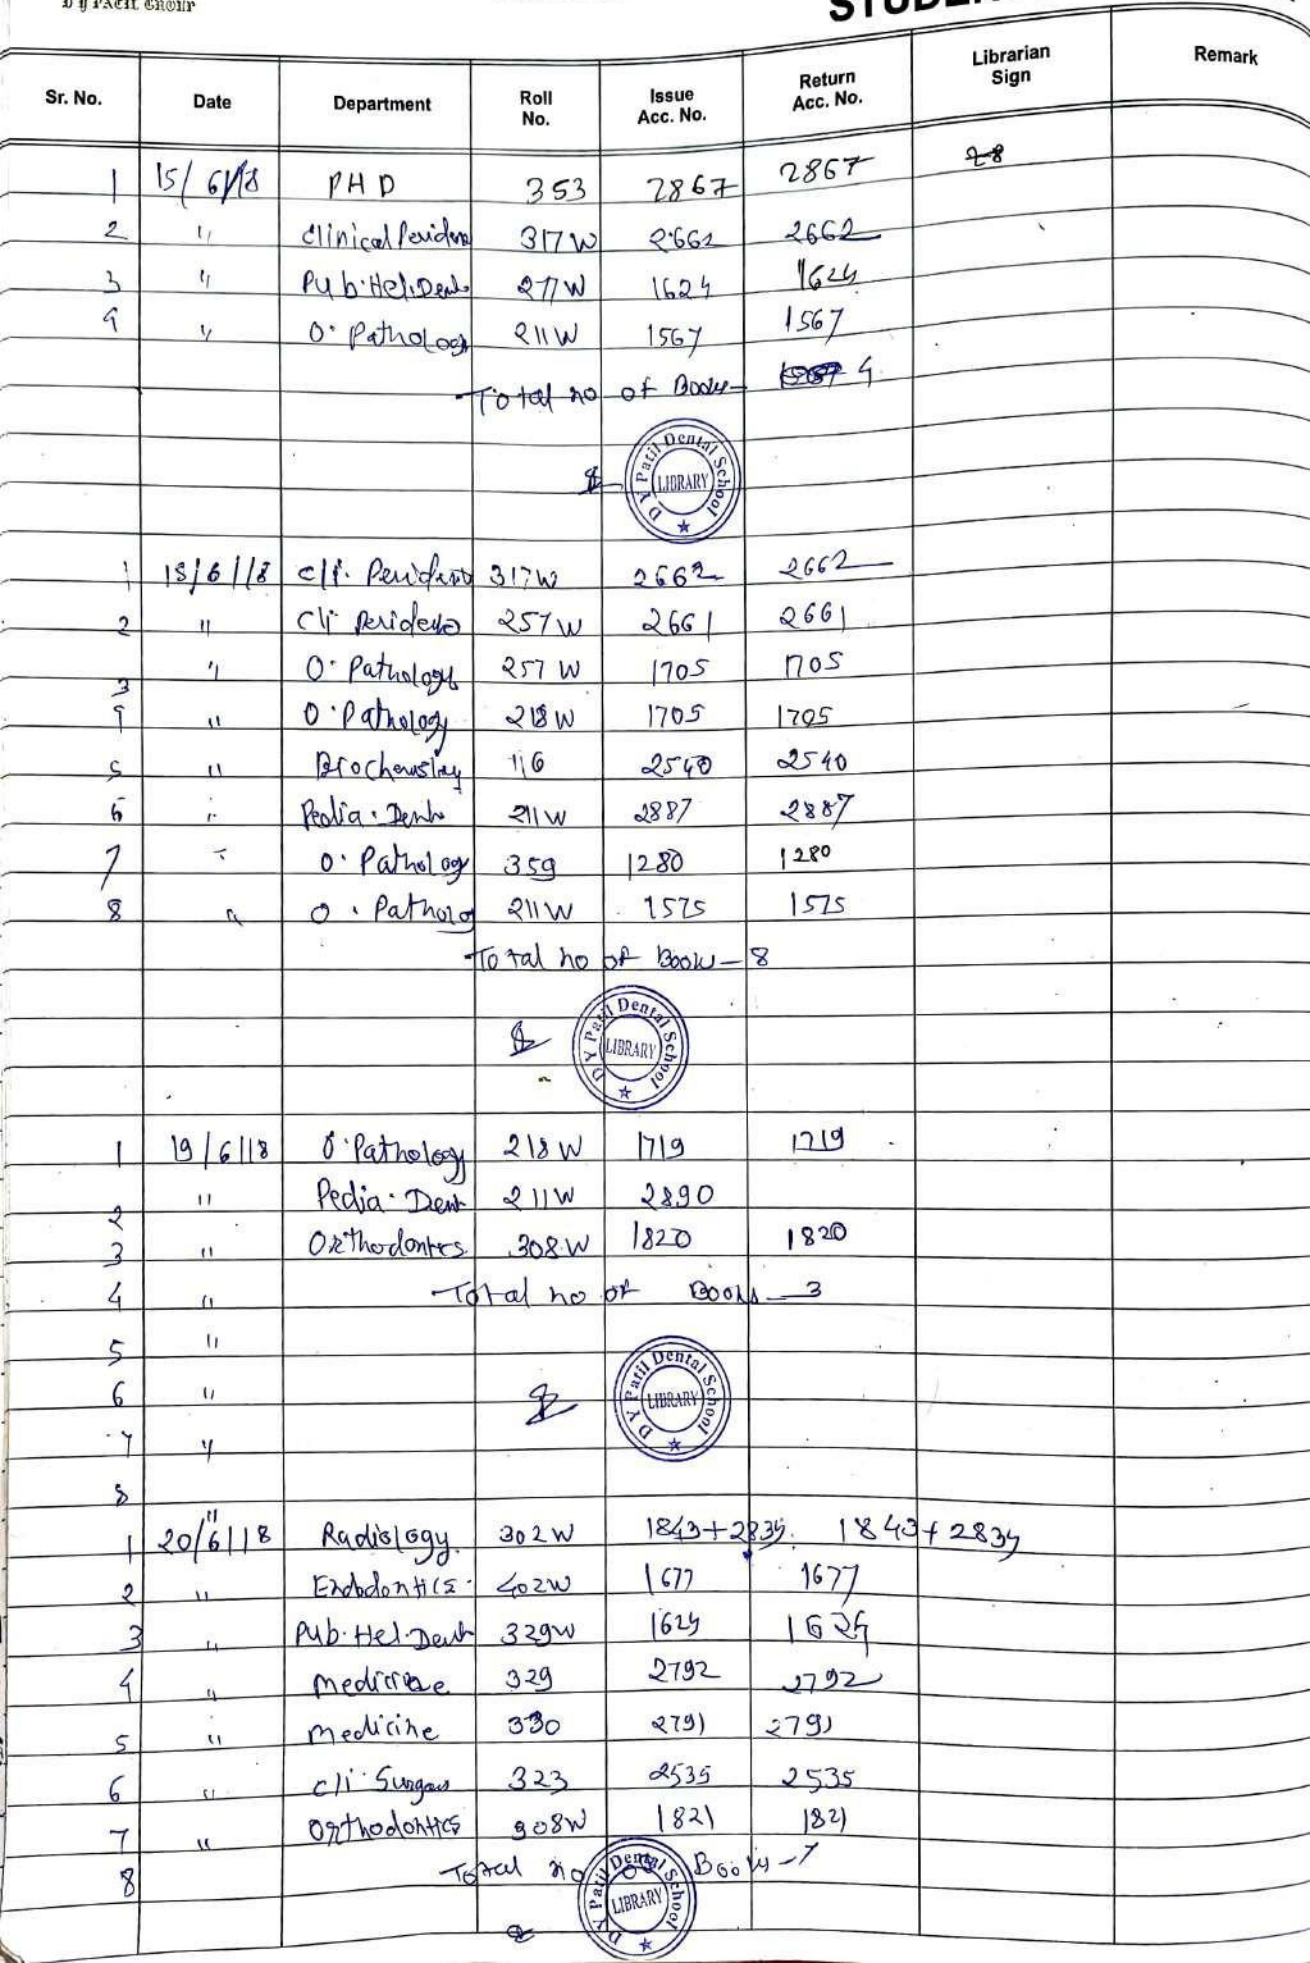 D Y PATIL GROUP
Sr. No. Date Department Roll No. Issue Acc. No. Return Acc. No. Librarian Sign Remark
1 15/6/18 PHD 353 2867 2867 28
2 " Clinical 317W 2662 2662
3 " Pub.Hel.Dent 277W 1624 1624
4 " O. Pathology 211W 1567 1567
Total no of Books - 4
D Y Patil Dental School LIBRARY
1 18/6/18 cli. 317W 2662 2662
2 " Cli 257W 2661 2661
3 " O. Pathology 257W 1705 1705
4 " O. Pathology 218W 1705 1705
5 " 116 2540 2540
6 " Pedia. Dent 211W 2887 2887
7 " O. Pathology 359 1280 1280
8 " O. Patholo 211W 1575 1575
Total no of Books - 8
D Y Patil Dental School LIBRARY
1 19/6/18 O. Pathology 218W 1719 1719
2 " Pedia. Dent 211W 2890
3 " Orthodontics 308W 1820 1820
4 " Total no of Books - 3
5 "
6 "
7 "
8 "
D Y Patil Dental School LIBRARY
1 20/6/18 Radiology 302W 1843+2834 1843+2834
2 " Endodontics 402W 1677 1677
3 " Pub.Hel.Dent 329W 1624 1624
4 " Medicine 329 2792 2792
5 " Medicine 330 2791 2791
6 " cli. 323 2535 2535
7 " Orthodontics 308W 1821 1821
8 Total no of Books - 7
D Y Patil Dental School LIBRARY